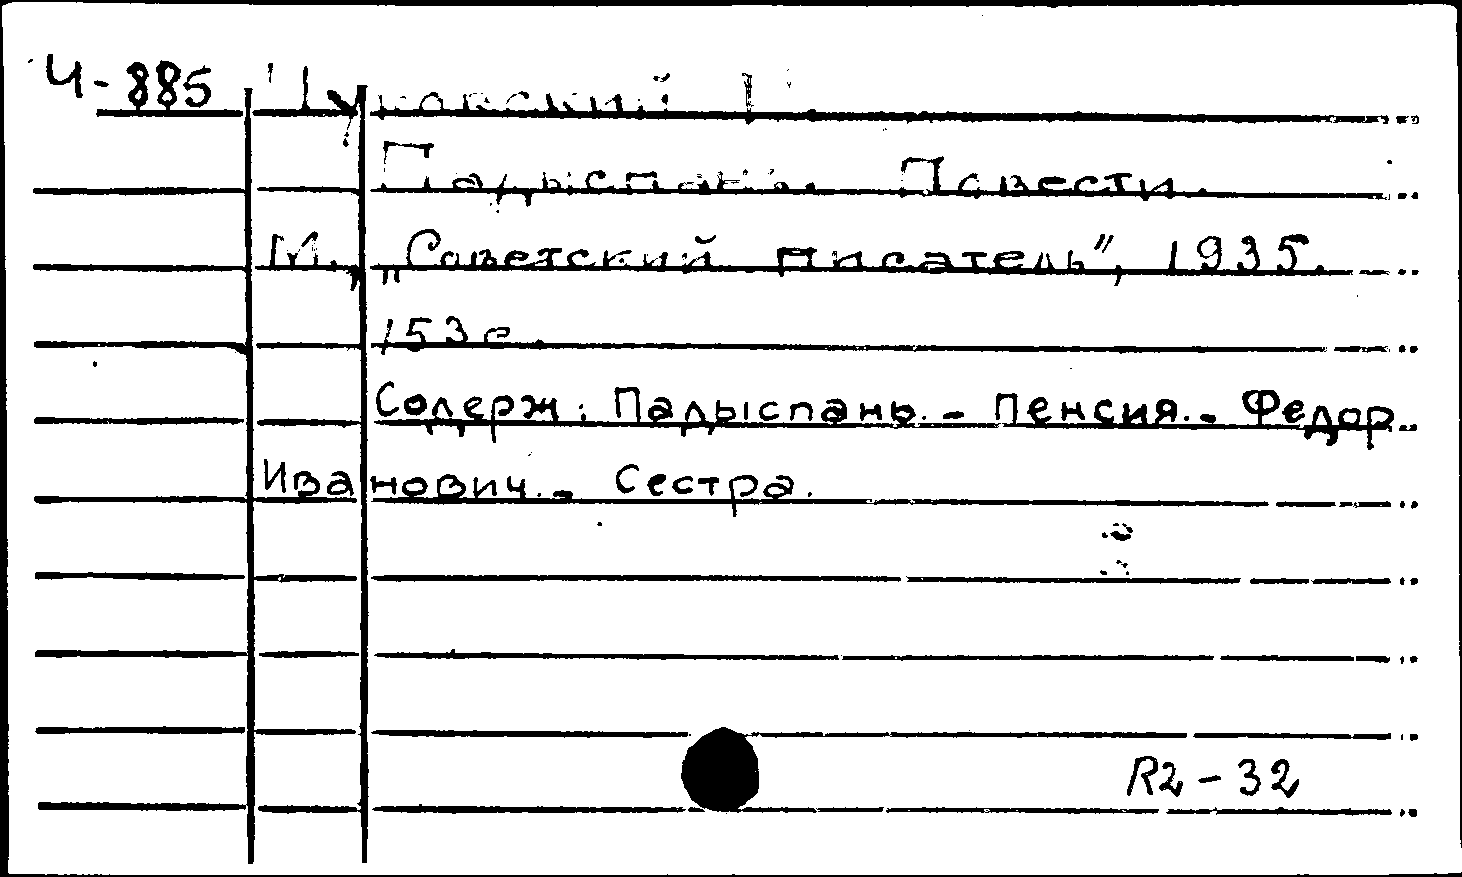 Ч-885 Чуковский
Падыспань. Повести.
М., „Советский писатель", 1935.
153 с.
Содерж: Падыспань. - Пенсия. - Федор
Иванович. - Сестра.
R2-32